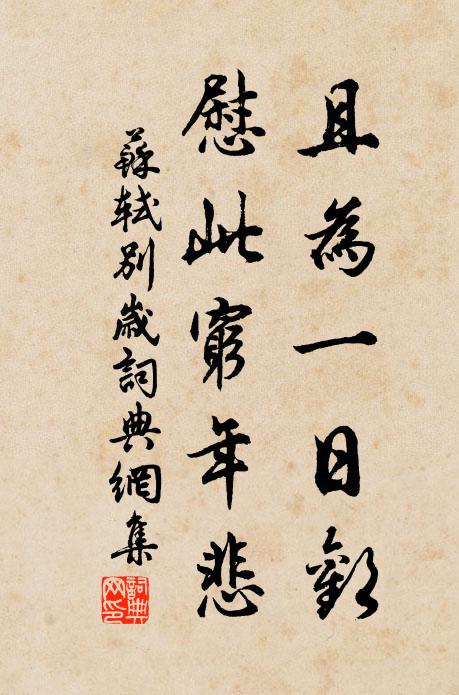 且為一日歡
慰此窮年悲
蘇軾別歲詞典網集
詞典网印